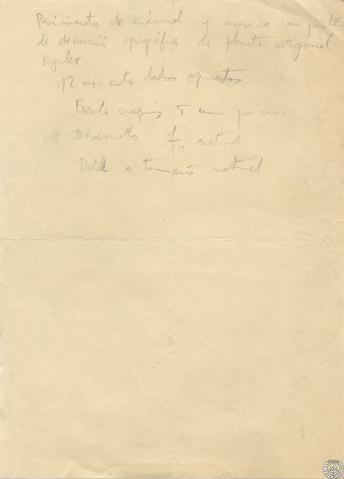 Pavimento de mármol y mosaico con parte
de decoración epigráfica de planta octogonal
regular
12 m. entre lados opuestos
Escala croquis 5 cm por m.
Desarrollo 1/10 natural
Detalle a tamaño natural